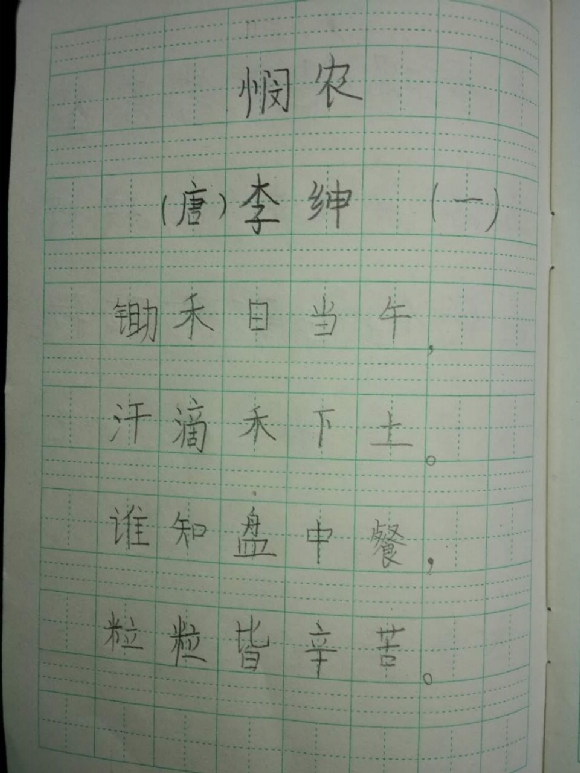 悯农
(唐)李绅 (一)
锄禾日当午，
汗滴禾下土。
谁知盘中餐，
粒粒皆辛苦。